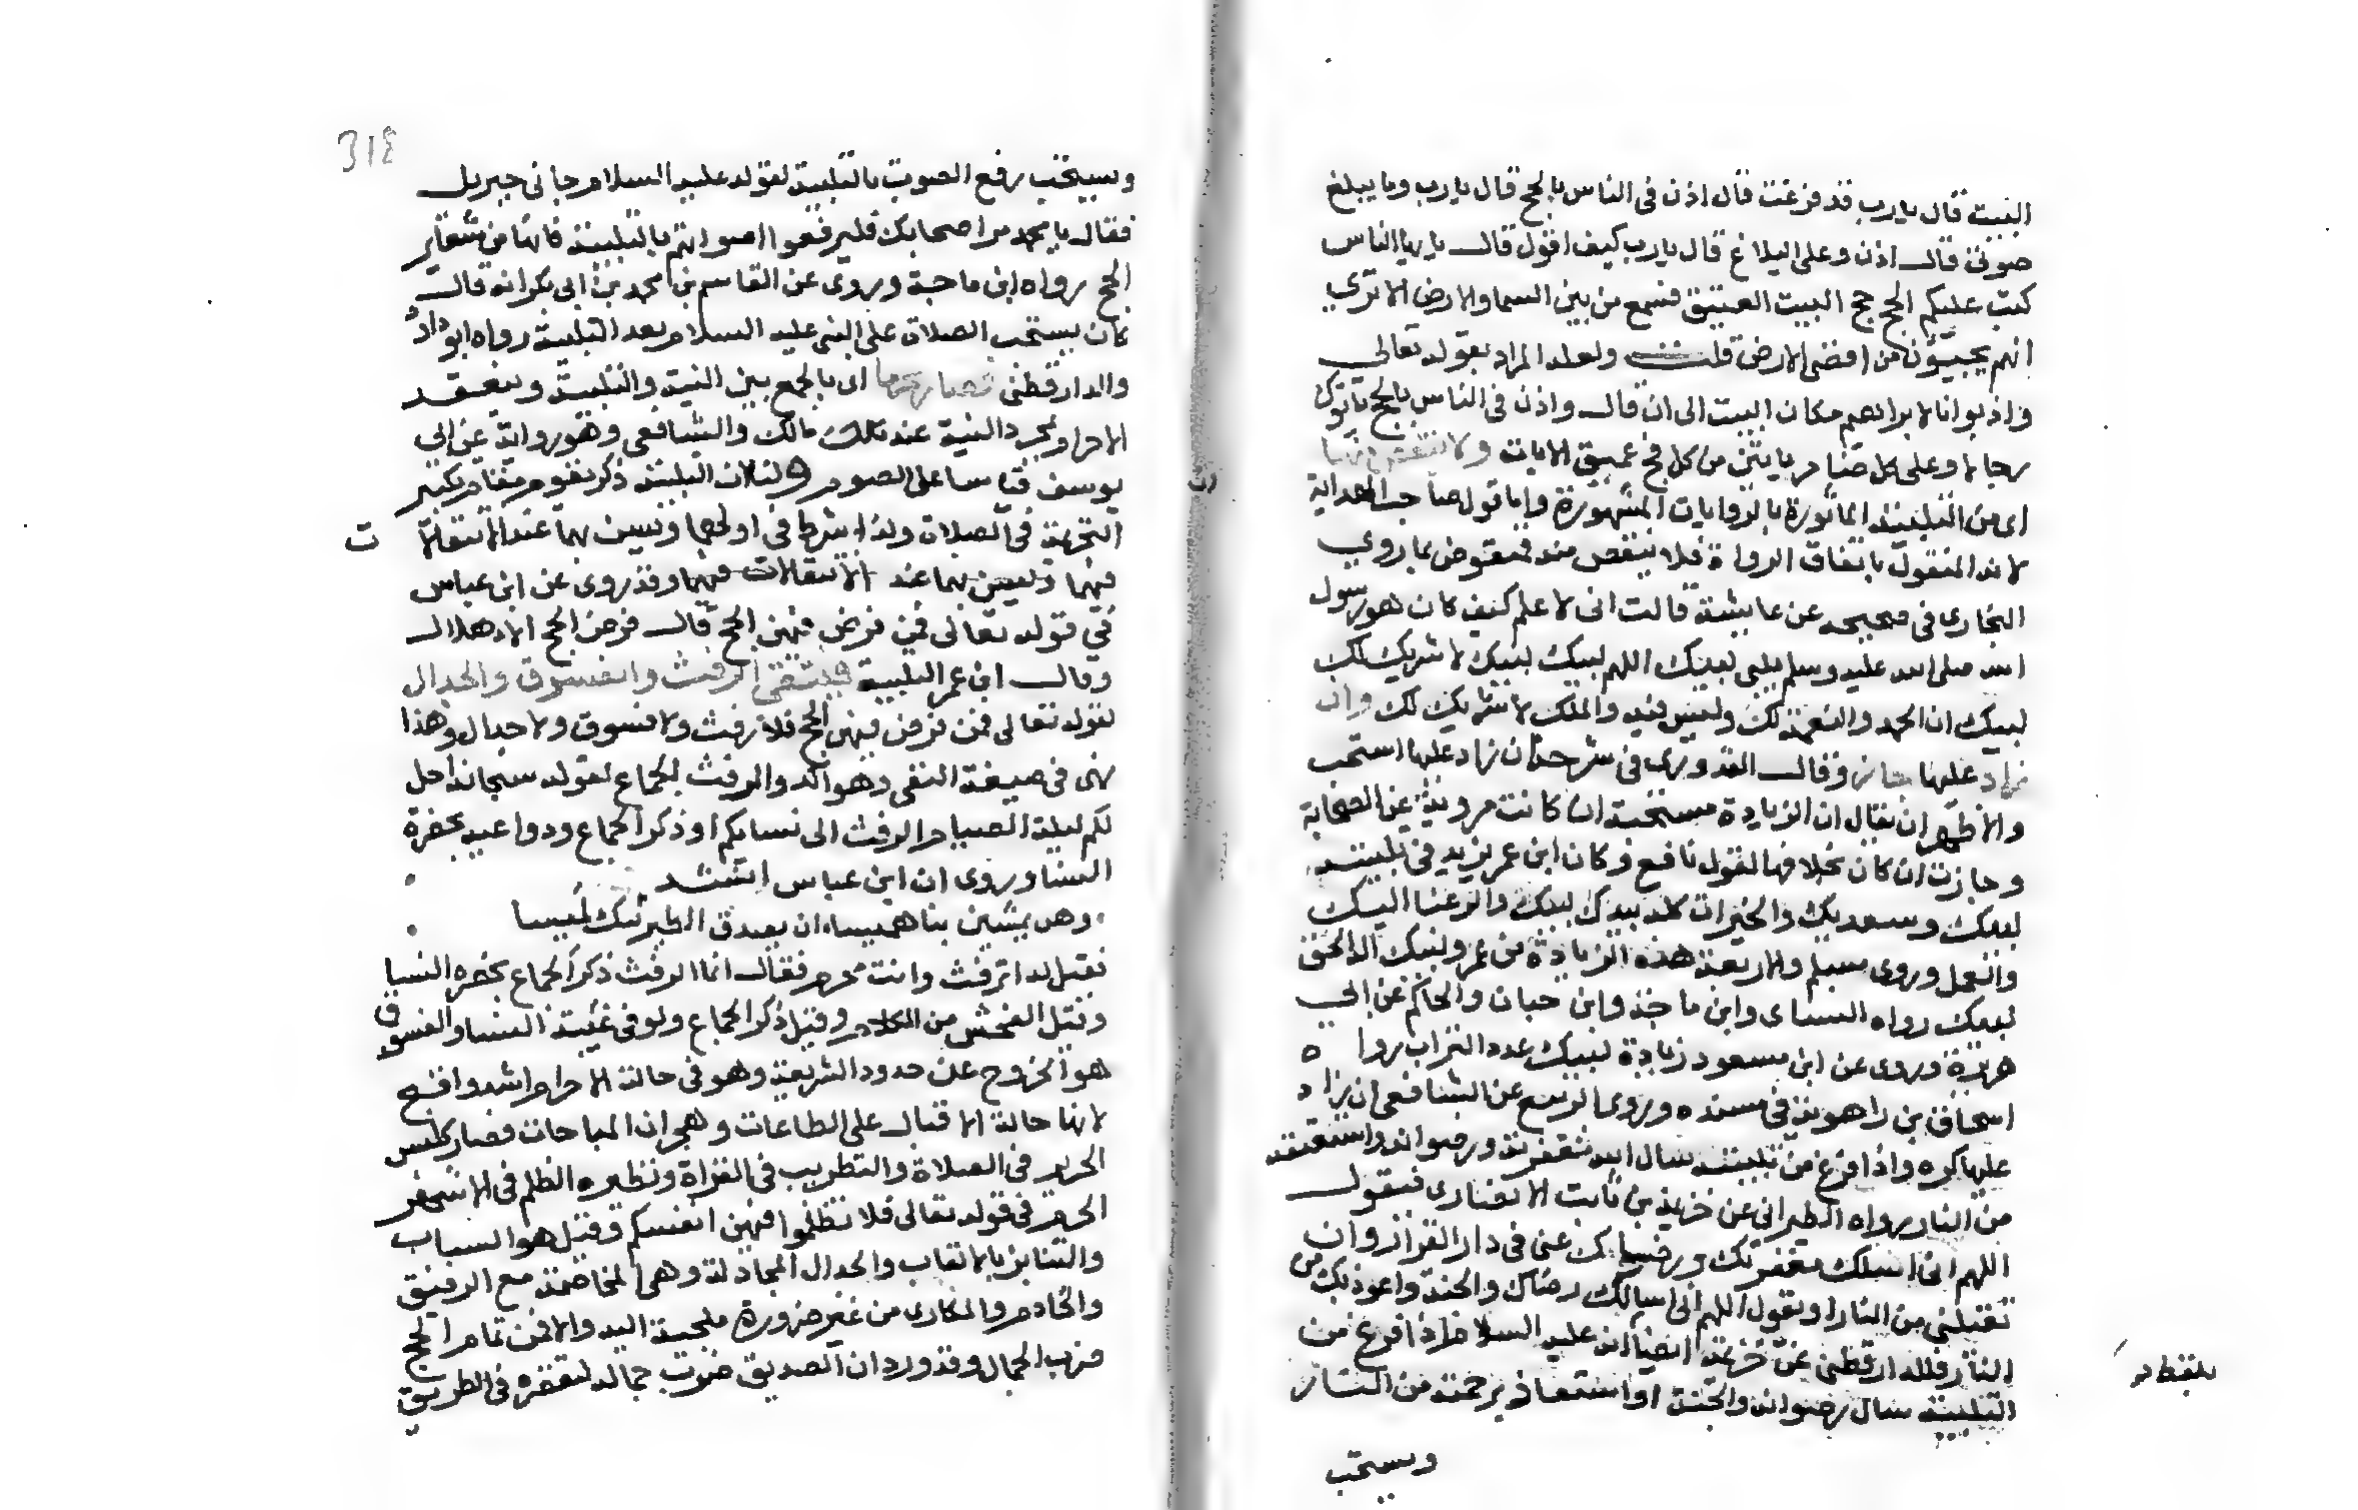 البيت قال يارب قد فرغت قال اذن فى الناس بالحج قال يارب وما يبلغ
صوتى قال اذن وعلى البلاغ قال يارب كيف اقول قال يايها الناس
كتب عليكم الحج حج البيت العتيق فسمع من بين السما والارض الا ترى
انهم يجيبون من اقصى الارض قلت ولعله المراد بقوله تعالى
واذ بوانا لابراهيم مكان البيت الى ان قال واذن فى الناس بالحج ياتوك
رجالا وعلى كل ضامر ياتين من كل فج عميق الايات ولا ينقص منها
اى من التلبية الماثورة بالروايات المشهورة واما قول صاحب الهداية
لانه المنقول باتفاق الرواة فلا ينقص منه فمنقوض بما روى
البخارى فى صحيحه عن عايشة قالت انى لاعلم كيف كان هو رسول
الله صلى الله عليه وسلم يلبى لبيك اللهم لبيك لبيك لا شريك لك
لبيك ان الحمد والنعمة لك وليس فيه والملك لا شريك لك وان
زاد عليها جاز وقال القدورى فى شرحه ان زاد عليها استحب
والاظهر ان يقال ان الزيادة مستحبة ان كانت مروية عن الصحابة
وجازت ان كان بخلافها لقول نافع وكان ابن عمر يزيد فى تلبيته
لبيك وسعديك والخيرات كله بيدك لبيك والرغبا اليك
والعمل وروى مسلم والاربعة هذه الزيادة من عمر ولبيك اله الحق
لبيك رواه النساى وابن ماجة وابن حبان والحاكم عن ابى
هريرة وروى عن ابن مسعود زيادة لبيك عدد التراب رواه
اسحاق بن راهويه فى مسنده وروى الربيع عن الشافعى ان زاد
عليها كره واذا فرغ من تلبيته سال الله مغفرته ورضوانه واستعتقه
من النار رواه الطبرانى عن خزيمة بن ثابت الانصارى فيقول
اللهم انى اسلك مغفرتك ورضاك عنى فى دار القرار وان
تعتقنى من النار او يقول اللهم انى اسالك رضاك والجنة واعوذ بك من
النار فللدارقطنى عن خزيمة ايضا انه عليه السلام اذا فرغ من
التلبية سال رضوانه والجنة او استعاذ برحمته من النار
بلفظ
ويستحب
318
ويستحب رفع الصوت بالتلبية لقوله عليه السلام جانى جبريل
فقال يا محمد مر اصحابك فليرفعوا اصواتهم بالتلبية فانها من شعاير
الحج رواه ابن ماجة وروى عن القاسم بن محمد بن ابى بكر انه قال
كان يستحب الصلاة على النبى عليه السلام بعد التلبية رواه ابو داود
والدارقطنى فصار محرما اى بالجمع بين النية والتلبية وينعقد
الاحرام بمجرد النية عند مالك والشافعى وهو رواية عن ابى
يوسف قياسا على الصوم ولنا ان التلبية ذكر يقوم مقام تكبير
التحريمة فى الصلاة ولذا يشرط فى اولهما ويسن بهما عند الانتقالات
فيهما ويسن بهما عند الانتقالات فيهما وقد روى عن ابن عباس
فى قوله تعالى فمن فرض فيهن الحج قال فرض الحج الاهلال
وقال ابن عمر التلبية فيتقى الرفث والفسوق والجدال
لقوله تعالى فمن فرض فيهن الحج فلا رفث ولا فسوق ولا جدال وهذا
نهى فى صيغة النفى وهو آكد والرفث الجماع لقوله سبحانه احل
لكم ليلة الصيام الرفث الى نسايكم او ذكر الجماع ودواعيه بحضرة
النسا وروى ان ابن عباس انشد
وهن يمشين بنا هميسا ان يصدق الطير ننك لميسا
فقيل له اترفث وانت محرم فقال انما الرفث ذكر الجماع بحضرة النسا
وقيل الفحش من الكلام وقيل ذكر الجماع ولو فى غيبة النسا والفسوق
هو الخروج عن حدود الشريعة وهو فى حالة الاحرام اشد واقبح
لانها حالة الاقبال على الطاعات وهجران المباحات فصار كلبس
الحرير فى الصلاة والتطريب فى القراة ونظيره الظلم فى الاشهر
الحرم فى قوله تعالى فلا تظلموا فيهن انفسكم وقيل هو السباب
والتنابز بالالقاب والجدال المجادلة وهى المخاصمة مع الرفيق
والخادم والمكارى من غير ضرورة ملجية اليه والا فمن تمام الحج
ضرب الجمال وقد ورد ان الصديق ضرب جماله لتقصيره فى الطريق